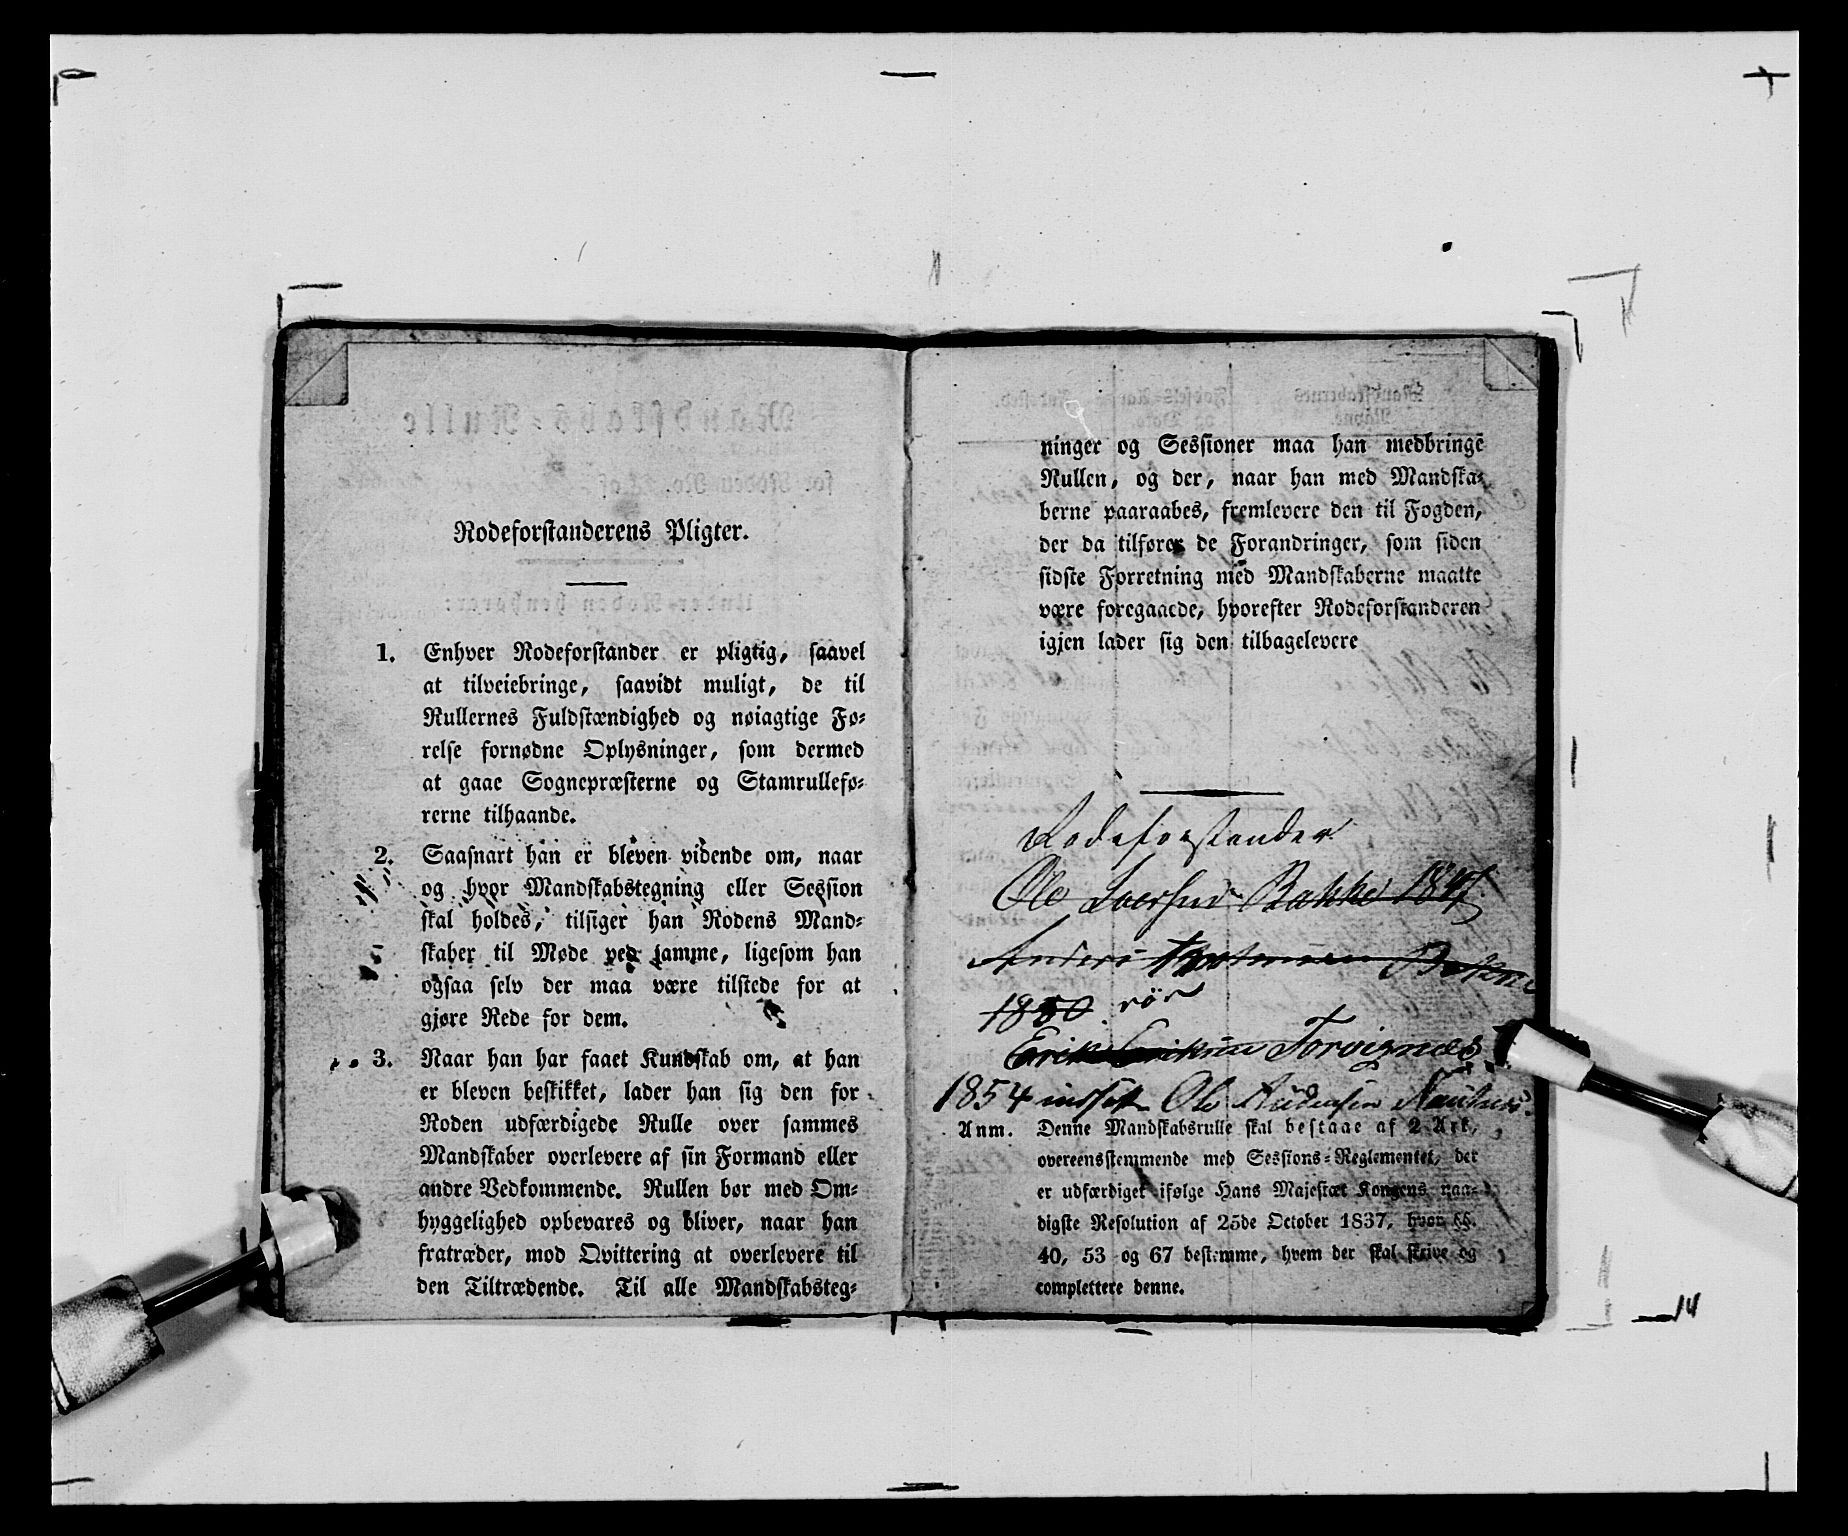 Rodeforstanderens Pligter.
1. Enhver Rodeforstander er pligtig, saavel
at tilveiebringe, saavidt muligt, de til
Rullernes Fuldstændighed og nøiagtige Fø-
relse fornødne Oplysninger, som dermed
at gaae Sognepræsterne og Stamrullefø-
rerne tilhaande.
2. Saasnart han er bleven vidende om, naar
og hvor Mandskabstegning eller Session
skal holdes, tilsiger han Rodens Mand-
skaber til Møde ved samme, ligesom han
ogsaa selv der maa være tilstede for at
gjøre Rede for dem.
3. Naar han har faaet Kundskab om, at han
er bleven beskikket, lader han sig den for
Roden udfærdigede Rulle over sammes
Mandskaber overlevere af sin Formand eller
andre Vedkommende. Rullen bør med Om-
hyggelighed opbevares og bliver, naar han
fratræder, mod Qvittering at overlevere til
den Tiltrædende. Til alle Mandskabsteg-
ninger og Sessioner maa han medbringe
Rullen, og der, naar han med Mandska-
berne paaraabes, fremlevere den til Fogden,
der da tilfører de Forandringer, som siden
sidste Forretning med Mandskaberne maatte
være foregaaede, hvorefter Rodeforstanderen
igjen lader sig den tilbagelevere
Rodeforstander
Ole Bakke 1847
Anders
1850
Erik Torvignæs
1854 indsat Ole
Anm. Denne Mandskabsrulle skal bestaae af 2 Ark,
overeensstemmende med Sessions-Reglementet, der
er udfærdiget ifølge Hans Majestæt Kongens naa-
digste Resolution af 25de October 1837, hvor §§.
40, 53 og 67 bestemme, hvem der skal skrive og
complettere denne.
14